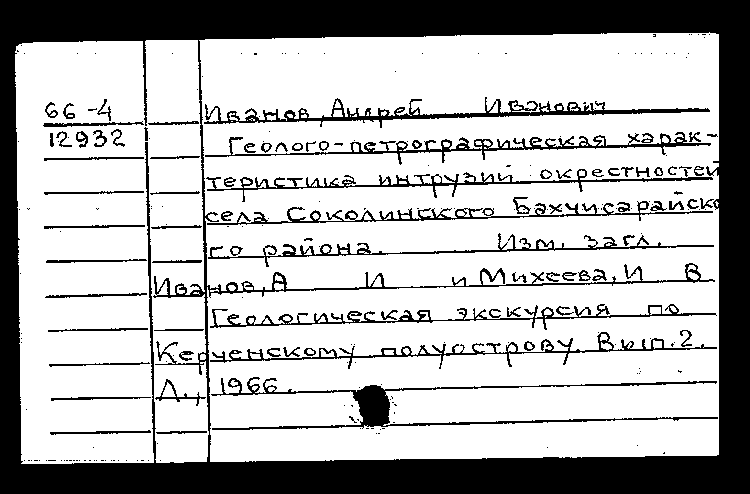 66-4 Иванов, Андрей Иванович
12932 Геолого-петрографическая харак-
теристика интрузий окрестностей
села Соколинского Бахчисарайско
го района. Изм. загл.
Иванов, А И и Михеева, И В
Геологическая экскурсия по
Керченскому полуострову. Вып.2.
Л., 1966.